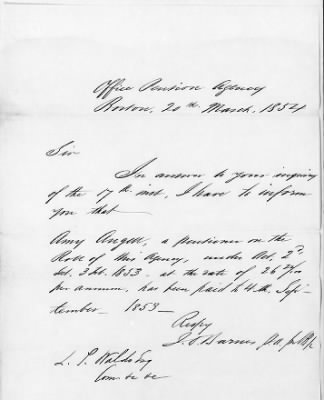 Office Pension Agency
Boston, 20th March, 1854
Sir
In answer to your inquiry
of the 17th inst, I have to inform
you that
Amy Angell, a pensioner on the
Roll of this Agency, under Act, 2d
Sec. 3 Feb. 1853 - at the rate of 26
per annum, has been paid to 4th, Sep-
tember - 1853 -
Respy
L. P. Waldo Esq
Com &c &c